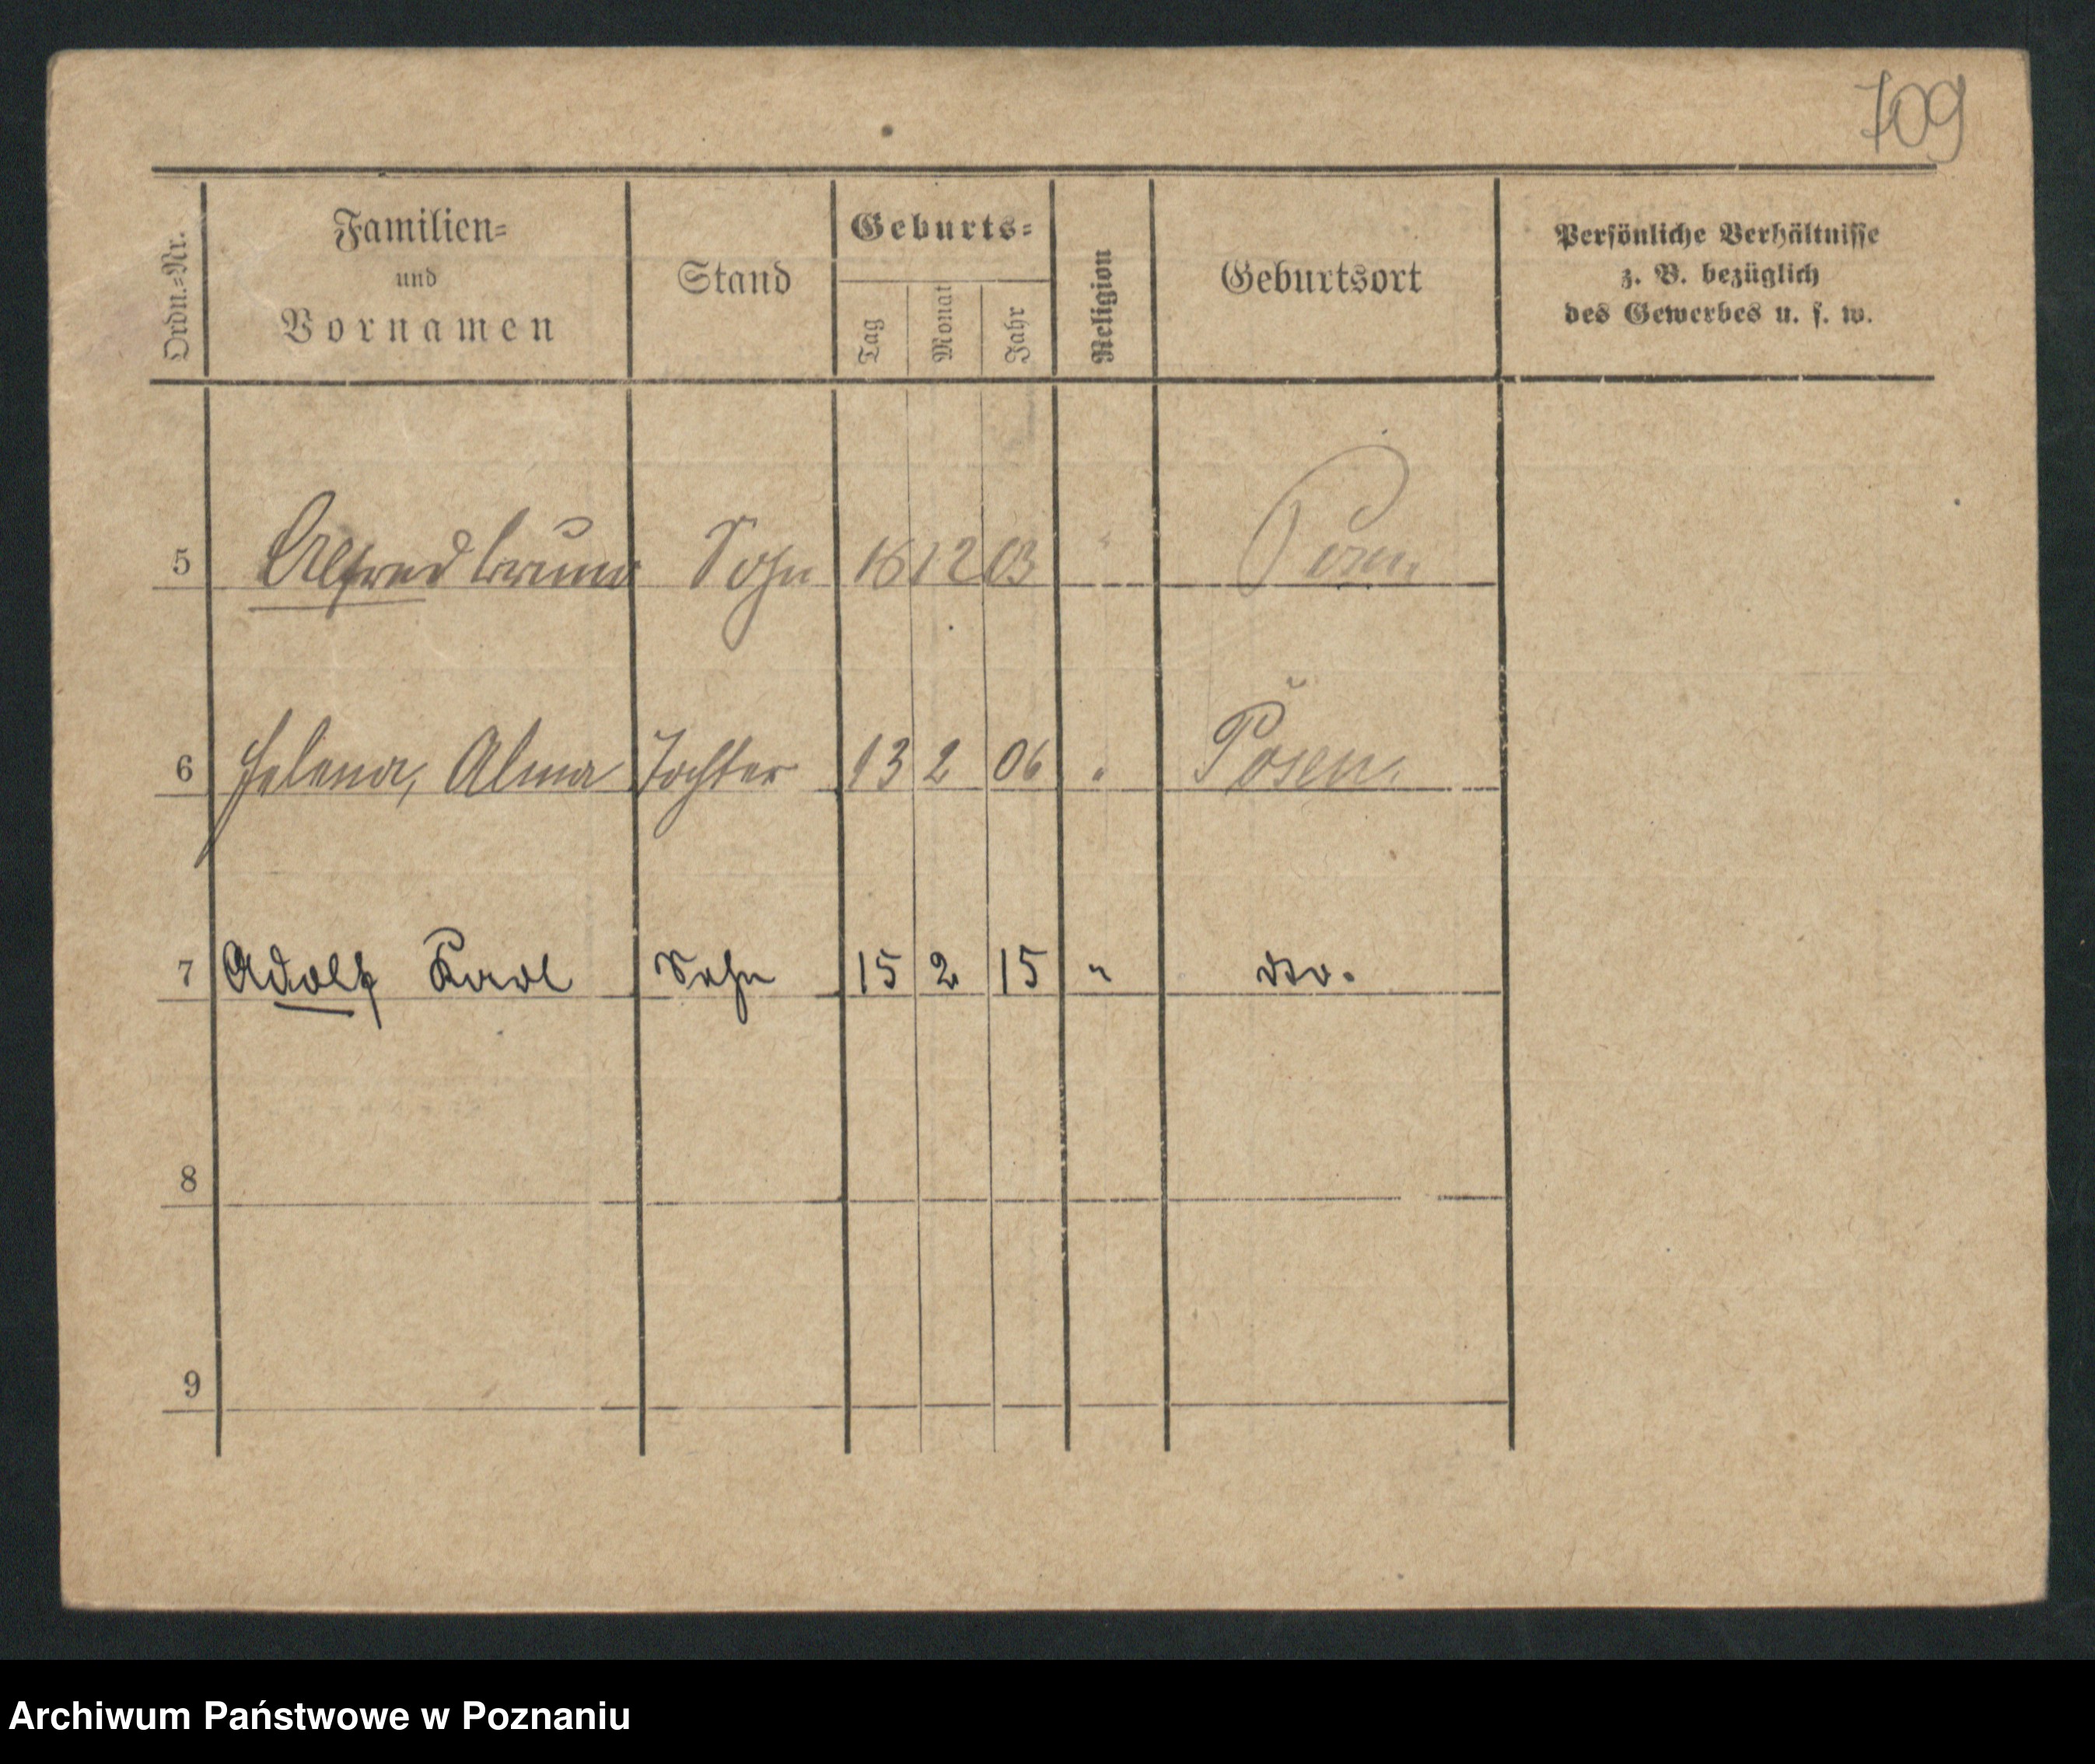 109
Ordn.=Nr. Familien= und Vornamen Stand Geburts= Tag Monat Jahr Religion Geburtsort Persönliche Verhältnisse z. B. bezüglich des Gewerbes u. s. w.
5 Alfred Bruno Sohn 16 12 03 " Posen.
6 Helena, Alma Tochter 13 2 06 " Posen.
7 Adolf Karl Sohn 15 2 15 " dto.
8
9
Archiwum Państwowe w Poznaniu